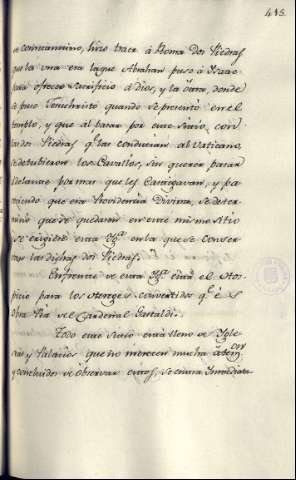 415.
a continuarmino, hizo traer à Roma dos Piedras
que la una era la que Abrahan puso à Isaac
para ofrecer Sacrificio à Dios, y la otra, donde
se puso Jesuchristo quando se presentó en el
templo, y que al pasar por este sitio con
las dos Piedras qe. las conducian al Vaticano,
se detubieron los Cavallos, sin querer pasar
delante por mas que les Castigavan, y pa
reciendo que era Providencia Divina, se deter
minò que se quedasen en este mismo sitio
y se erigiese esta Yga. en la que se conser
ban las dichas dos Piedras.
Enfrente de esta Yga. està el Hos
picio para los Hereges convertidos qe. es
obra Pia del Cardenal Gastaldi.
Todo este sitio està lleno de Ygle
sias y Palacios que no merecen mucha atenon
y concluidos de observar estos, se encra Inmediata